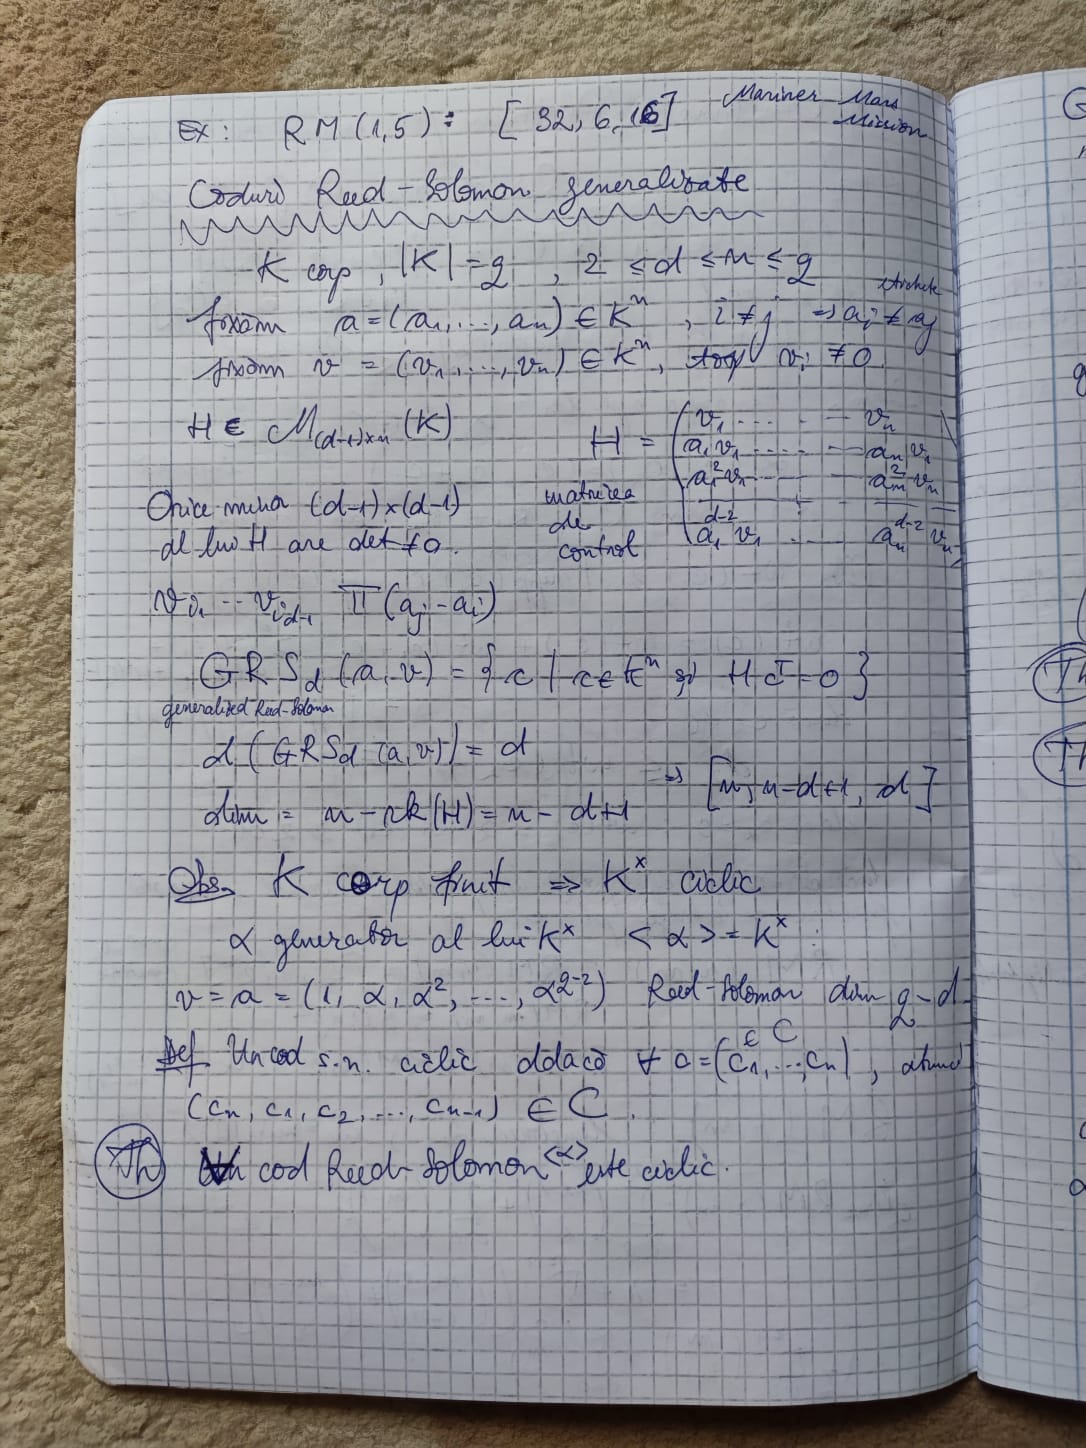 Ex: RM(1,5): [32, 6, 16] Mariner Mars Mission
Coduri Reed-Solomon generalizate
K corp, |K|=q, 2 ≤ d ≤ n ≤ q
fixăm a=(a₁,...,aₙ) ∈ Kⁿ, i≠j ⇒ aᵢ ≠ aⱼ
fixăm v = (v₁,...,vₙ) ∈ Kⁿ, vᵢ ≠ 0
H ∈ M₍d-1₎ₓₙ (K)
H = ( v₁ ..... - vₙ
a₁v₁ ..... - aₙv₁
a₁²v₁ ..... - aₙ²vₙ
a₁^{d-2}v₁ ..... aₙ^{d-2}vₙ )
matricea de control
Orice minor (d-1)×(d-1)
al lui H are det ≠0.
v_{i₁} ... v_{i_{d-1}} Π(aⱼ-aᵢ)
GRS_d (a,v) = {c | c∈Kⁿ și Hcᵀ=0}
generalized Reed-Solomon
d(GRS_d (a,v)) = d
⇒ [n, n-d+1, d]
dim = n - rk(H) = n - d+1
Obs. K corp finit ⇒ K^× ciclic
α generator al lui K^× <α> = K^×
v = a = (1, α, α², ..., α^{q-2}) Reed-Solomon dim q-d
Def Un cod s.n. ciclic ddacă ∀ c=(c₁,...,cₙ) ∈ C, atunci
(cₙ, c₁, c₂, ..., cₙ₋₁) ∈ C.
Th Un cod Reed-Solomon <α> este ciclic.